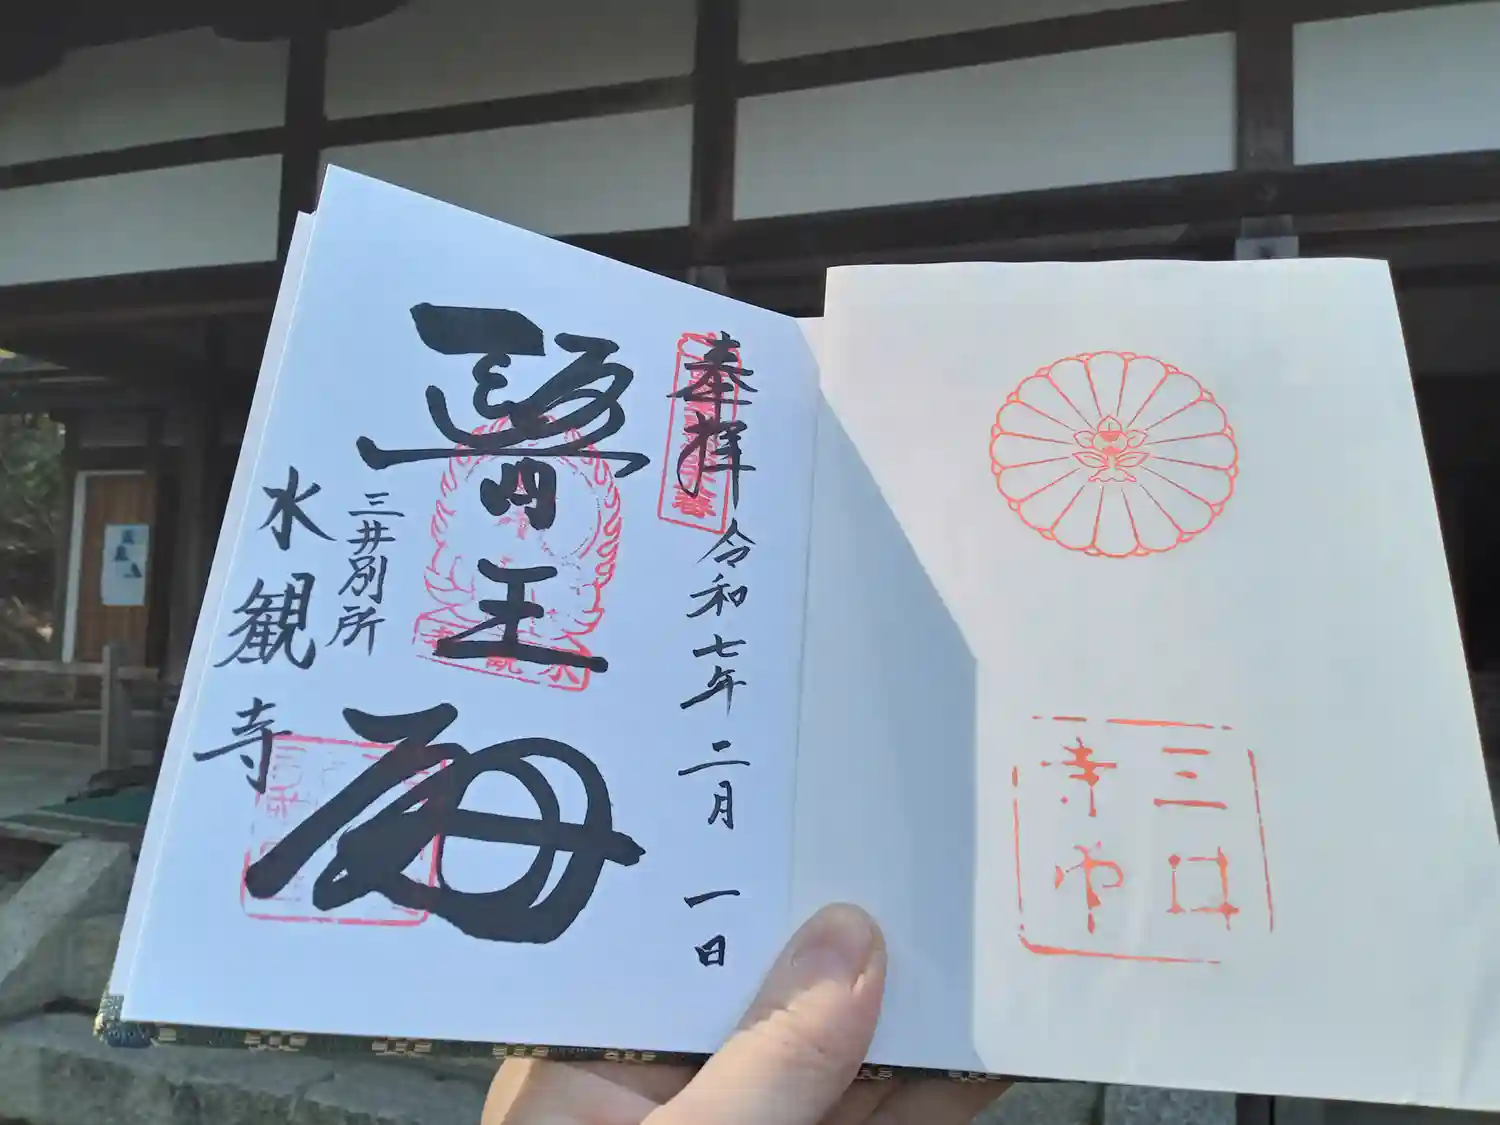 奉拝
令和七年二月一日
醫王殿
三井別所
水観寺
三井
寺印